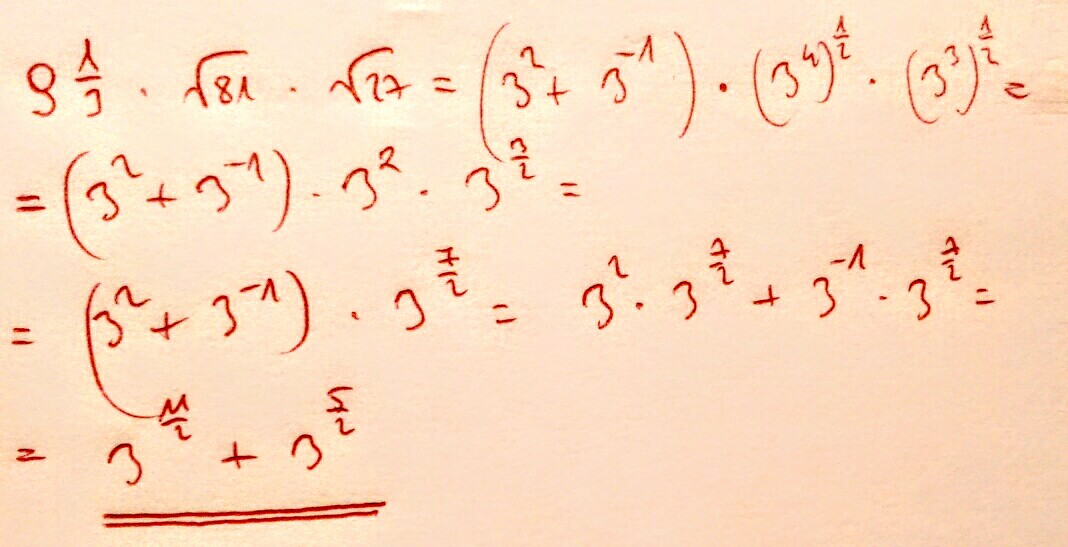 9 1/3 · √81 · √27 = (3² + 3⁻¹) · (3⁴)^(1/2) · (3³)^(1/2) =
= (3² + 3⁻¹) · 3² · 3^(3/2) =
= (3² + 3⁻¹) · 3^(7/2) = 3² · 3^(7/2) + 3⁻¹ · 3^(7/2) =
= 3^(11/2) + 3^(5/2)